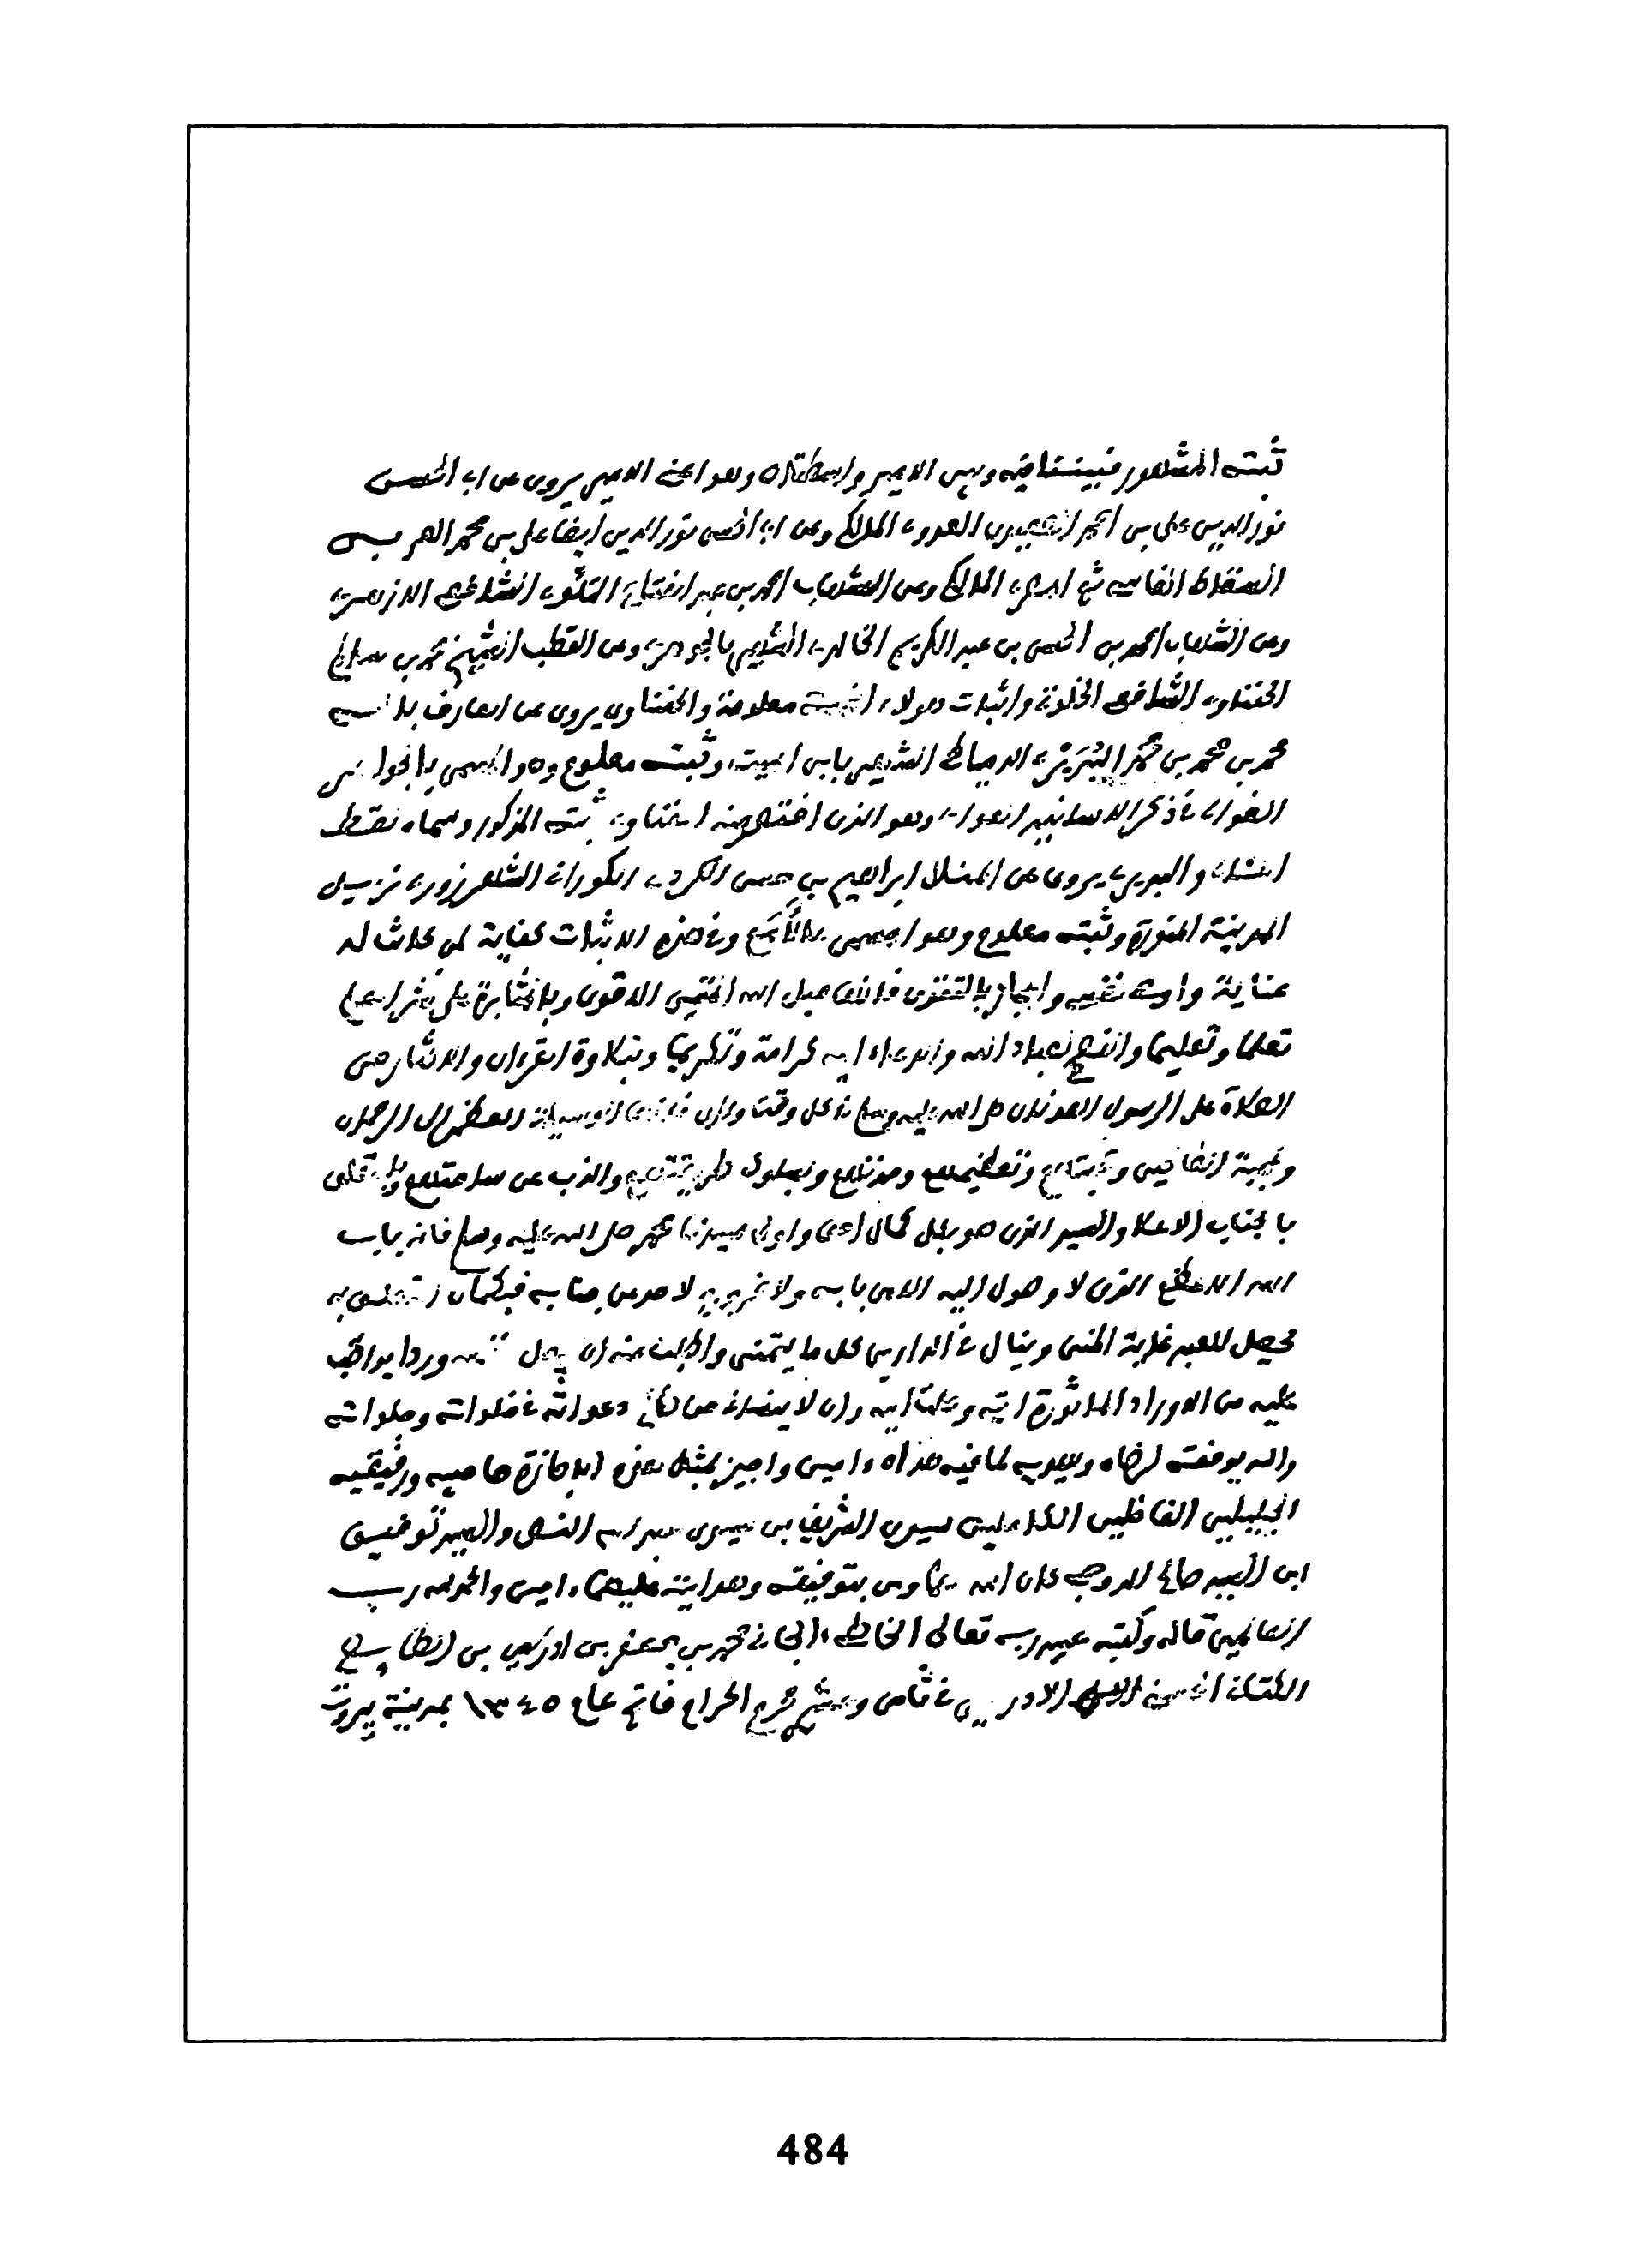 ثبته المشهور فبيننا فيه وبين الامير واسطتان وهو اعني الامير يروي عن ابي الحسن
نور الدين علي بن احمد الصعيدي العدوي المالكي وعن ابي الحسن نور الدين ايضا علي بن محمد العربي
السقاط الفاسي ثم المصري المالكي وعن الشهاب احمد بن عبد الفتاح الملوي الشافعي الازهري
وعن الشهاب احمد بن الحسن بن عبد الكريم الخالدي الشهير بالجوهري وعن القطب الشيخ محمد بن سالم
الحفناوي الشافعي الخلوتي واثبات هولاء الخمسة معلومة والحفناوي يروي عن العارف بالله
محمد بن محمد بن محمد البُدَيْري الدمياطي الشهير بابن الميت وثبته معلوم وهو المسمى بالجواهر
الغوالي في ذكر الاسانيد العوالي وهو الذي اختصر منه الحفناوي ثبته المذكور وسماه
والبديري يروي عن المنلا ابراهيم بن حسن الكردي الكوراني الشهرزوري نزيل
المدينة المنورة وثبته معلوم وهو المسمى بالأَمَم وفي هذه الاثبات كفاية لمن كانت له
عناية واوصي نفسي والمجاز بالتقوى فانها حبل الله المتين الاقوى وبالمثابرة على نشر العلم
تعلما وتعليما والنصح لعباد الله والدعاء اليه كرامة وتكريما وبتلاوة القرءان والاكثار من
الصلاة على الرسول العدنان صلى الله عليه وسلم في كل وقت واوان فانها الوسيلة العظمى الى الرحمان
ومحبة الصالحين وتعظيمهم وسلوك طريقتهم والذب عن ساحتهم والتعلق
بالجناب الاعلا والسيد الذي هو بكل كمال احق واولى سيدنا محمد صلى الله عليه وسلم فانه باب
الله الاعظم الذي لا وصول اليه الا من بابه ولا لاحد من جنابه فبكمال التعلق به
يحصل للعبد غاية المنى وينال في الدارين كل ما يتمنى واطلب منه ان يجعل وردا يواظب
عليه من الاوراد الماثورة وان لا ينساني من صالح دعواته في خلواته وجلواته
والله يوفقه لرضاه ويهديه لما فيه هداه ءامين واجيز بمثل هذه الاجازة صاحبيه ورفيقيه
الجليلين الفاضلين الكاملين سيدي الشريف بن سيدي عبد الله النص والسيد توفيق
ابن السيد صالح كان الله لهما ومن بتوفيقه وهدايته عليهما ءامين والحمد لله رب
العالمين قاله وكتبه عبيد ربه تعالى محمد بن جعفر بن ادريس بن الطايع
الكتاني الحسني الادريسي في ثامن وعشري محرم الحرام فاتح عام ١٣٤٥ بمدينة بيروت
484